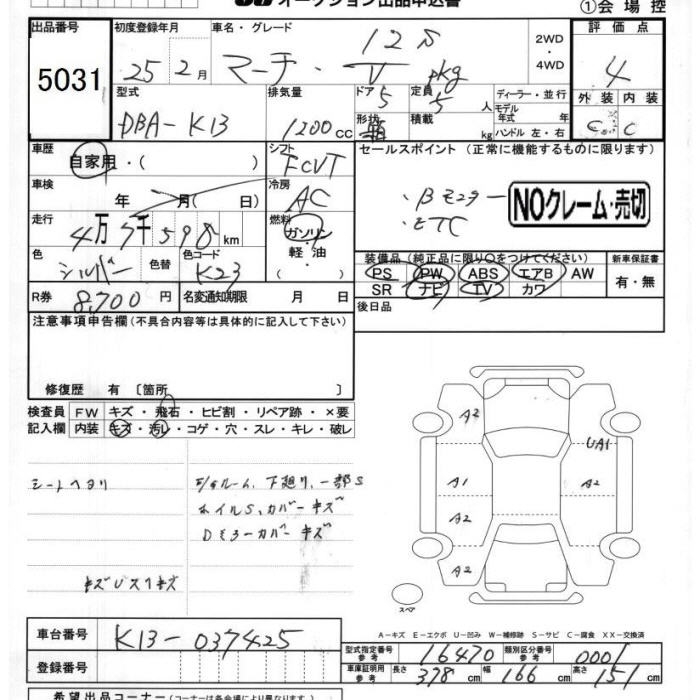 オークション出品申込書
①会場控
出品番号
5031
初度登録年月
25 2月
車名・グレード
マーチ・12S V pkg
2WD
・
4WD
評価点
4
外装 内装
C C
型式
DBA-K13
排気量
1200cc
ドア 5
形状 箱
定員 5人
積載 kg
ディーラー・並行
モデル年式 年
ハンドル 左・右
車歴
自家用・( )
シフト
FCVT
車検
年 月( 日)
冷房
AC
走行
4万7千598km
燃料
ガソリン
・
軽油
( )
色
シルバー
色替
色コード
K23
R券
8,700円
名変通知期限 月 日
セールスポイント(正常に機能するものに限ります)
・Bモニター
・ETC
NOクレーム・売切
装備品(純正品に限り○をつけてください)
PS PW ABS エアB AW
SR ナビ TV カワ
新車保証書
有・無
後日品
注意事項申告欄(不具合内容等は具体的に記入して下さい)
修復歴 有 〔箇所 〕
検査員記入欄
FW キズ・飛石・ヒビ割・リペア跡・×要
内装 キズ・汚レ・コゲ・穴・スレ・キレ・破レ
シートヘタリ
下廻り、一部S
ホイルS、カバーキズ
Dミラーカバーキズ
A2
UA1
A1
A2
A2
A2
スペア
A-キズ E-エクボ U-凹み W-補修跡 S-サビ C-腐食 XX-交換済
車台番号
K13-037425
登録番号
型式指定番号 参考 16470
類別区分番号 参考 0001
車庫証明用 参考 長さ 378cm 幅 166cm 高さ 151cm
希望出品コーナー(コーナーは各会場により異なります)